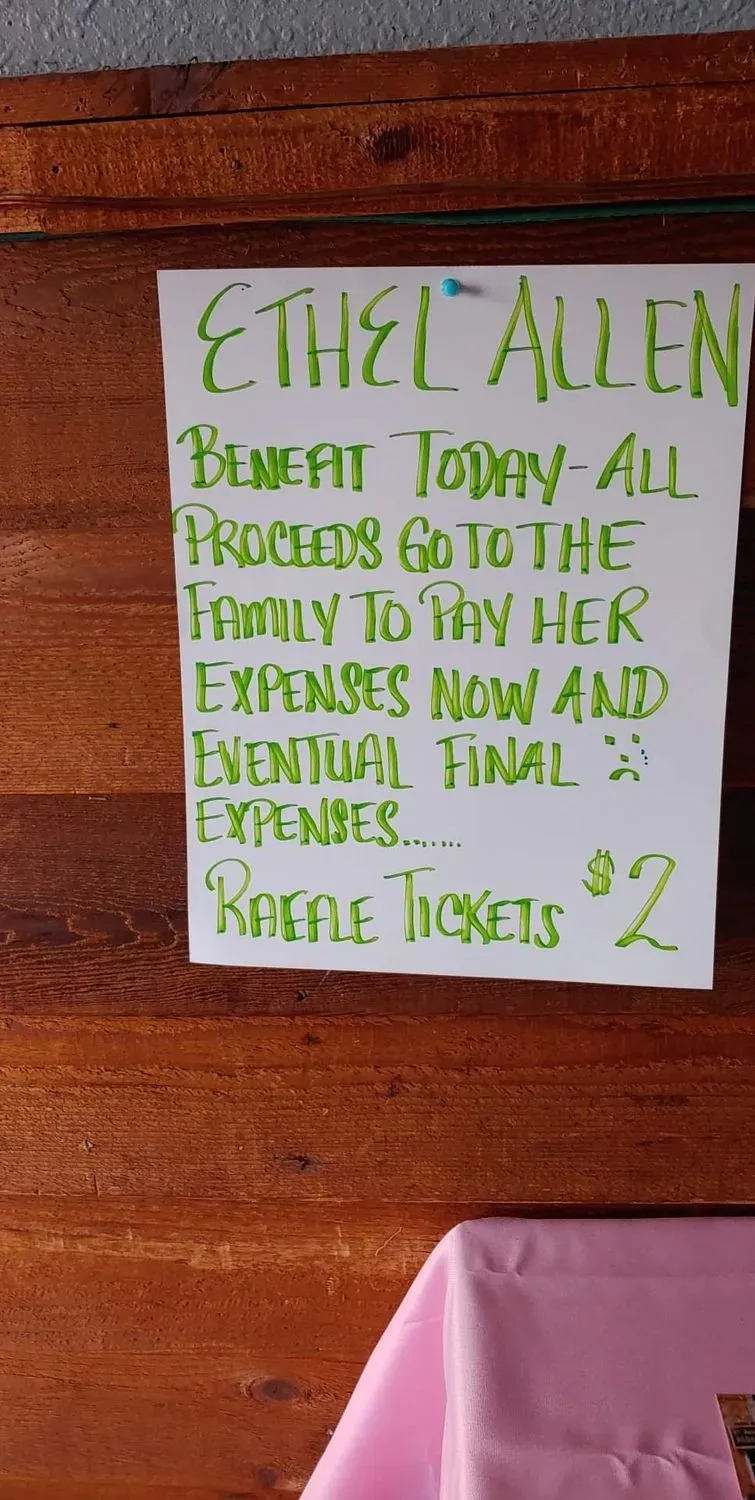 ETHEL ALLEN
BENEFIT TODAY - ALL
PROCEEDS GO TO THE
FAMILY TO PAY HER
EXPENSES NOW AND
EVENTUAL FINAL
EXPENSES.......
RAFFLE TICKETS $2